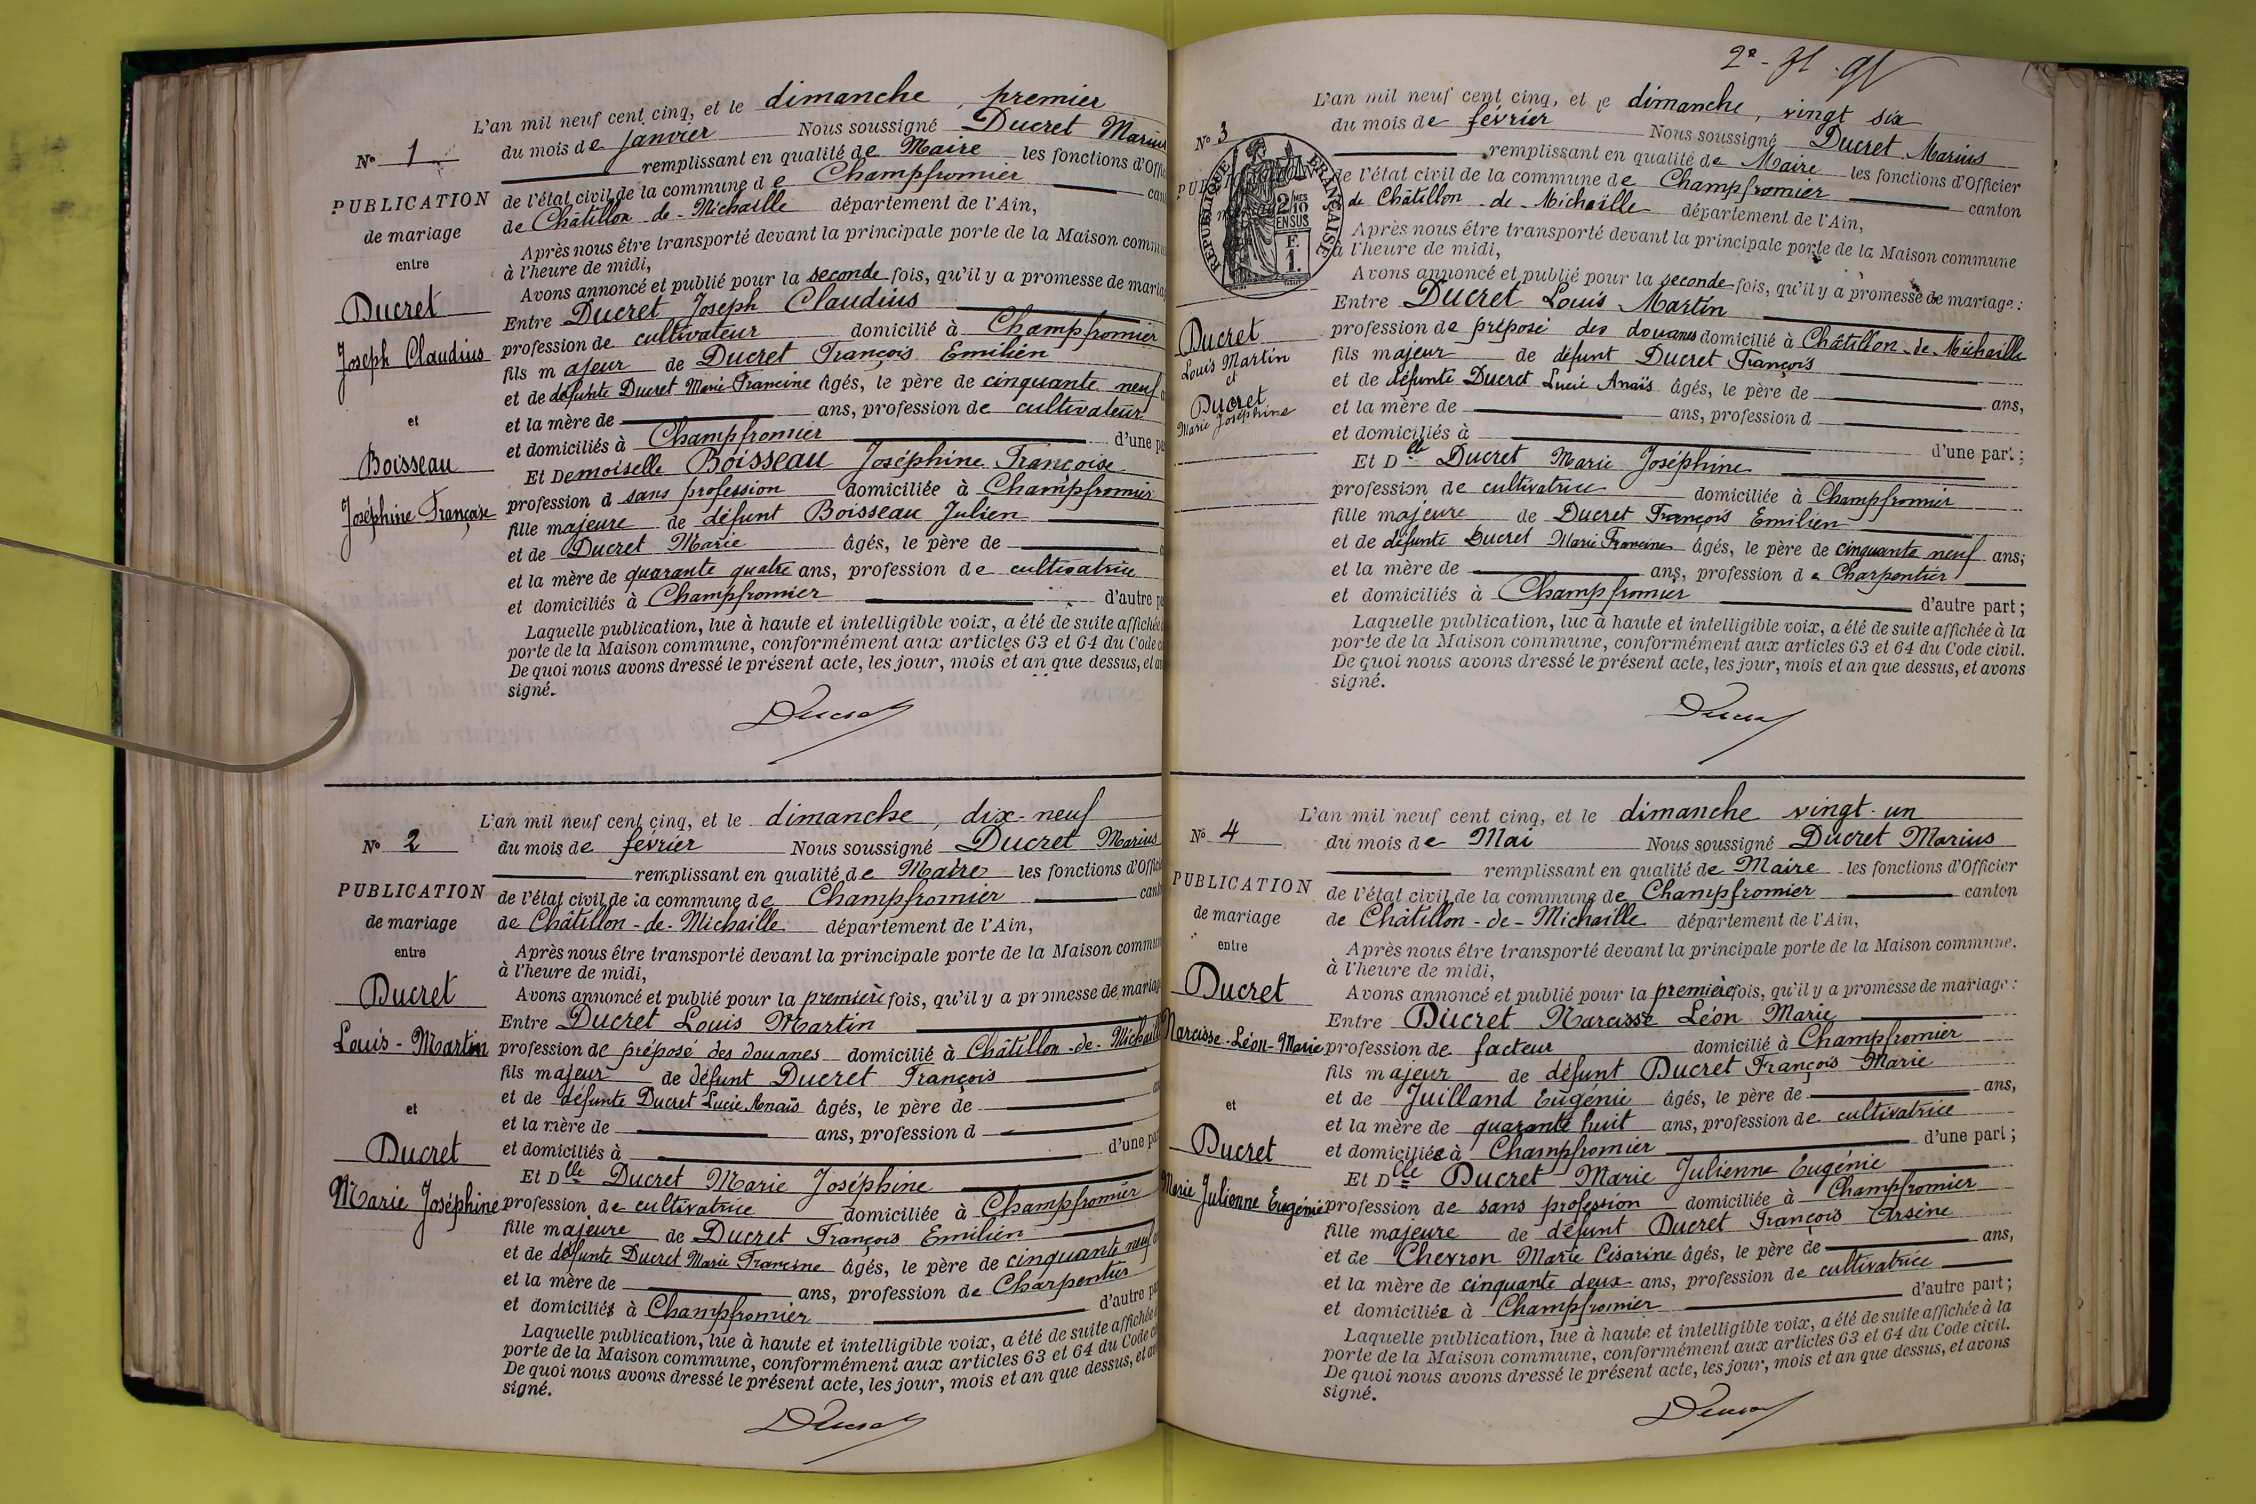 L'an mil neuf cent cinq, et le dimanche, premier
du mois de janvier Nous soussigné Ducret Marius
remplissant en qualité de Maire les fonctions d'Offi
de l'état civil de la commune de Champfromier can
de Châtillon-de-Michaille département de l'Ain,
Après nous être transporté devant la principale porte de la Maison commu
à l'heure de midi,
Avons annoncé et publié pour la seconde fois, qu'il y a promesse de maria
Entre Ducret Joseph Claudius
profession de cultivateur domicilié à Champfromier
fils majeur de Ducret François Emilien
et de défunte Ducret Marie Francine âgés, le père de cinquante neuf
et la mère de ans, profession de cultivateur
et domiciliés à Champfromier d'une pa
Et Demoiselle Boisseau Joséphine Françoise
profession d sans profession domiciliée à Champfromier
fille majeure de défunt Boisseau Julien
et de Ducret Marie âgés, le père de
et la mère de quarante quatre ans, profession de cultivatrice
et domiciliés à Champfromier d'autre pa
Laquelle publication, lue à haute et intelligible voix, a été de suite affichée
porte de la Maison commune, conformément aux articles 63 et 64 du Code c
De quoi nous avons dressé le présent acte, les jour, mois et an que dessus, et av
signé.
Ducret
No 1
PUBLICATION
de mariage
entre
Ducret
Joseph Claudius
et
Boisseau
Joséphine Françoise
L'an mil neuf cent cinq, et le dimanche, dix-neuf
du mois de février Nous soussigné Ducret Marius
remplissant en qualité de Maire les fonctions d'Offici
de l'état civil de la commune de Champfromier canto
de Châtillon-de-Michaille département de l'Ain,
Après nous être transporté devant la principale porte de la Maison commun
à l'heure de midi,
Avons annoncé et publié pour la première fois, qu'il y a promesse de mariag
Entre Ducret Louis Martin
profession de préposé des douanes domicilié à Châtillon-de-Michaille
fils majeur de défunt Ducret François
et de défunte Ducret Lucie Anaïs âgés, le père de
et la mère de ans, profession d
et domiciliés à d'une par
Et Dlle Ducret Marie Joséphine
profession de cultivatrice domiciliée à Champfromier
fille majeure de Ducret François Emilien
et de défunte Ducret Marie Francine âgés, le père de cinquante neuf
et la mère de ans, profession de Charpentier
et domiciliés à Champfromier d'autre pa
Laquelle publication, lue à haute et intelligible voix, a été de suite affichée
porte de la Maison commune, conformément aux articles 63 et 64 du Code c
De quoi nous avons dressé le présent acte, les jour, mois et an que dessus, et av
signé.
Ducret
No 2
PUBLICATION
de mariage
entre
Ducret
Louis-Martin
et
Ducret
Marie Joséphine
L'an mil neuf cent cinq, et le dimanche, vingt six
du mois de février Nous soussigné Ducret Marius
remplissant en qualité de Maire les fonctions d'Officier
de l'état civil de la commune de Champfromier canton
de Châtillon-de-Michaille département de l'Ain,
Après nous être transporté devant la principale porte de la Maison commune
à l'heure de midi,
Avons annoncé et publié pour la seconde fois, qu'il y a promesse de mariage:
Entre Ducret Louis Martin
profession de préposé des douanes domicilié à Châtillon-de-Michaille
fils majeur de défunt Ducret François
et de défunte Ducret Lucie Anaïs âgés, le père de ans,
et la mère de ans, profession d
et domiciliés à d'une part;
Et Dlle Ducret Marie Joséphine
profession de cultivatrice domiciliée à Champfromier
fille majeure de Ducret François Emilien
et de défunte Ducret Marie Francine âgés, le père de cinquante neuf ans;
et la mère de ans, profession de Charpentier
et domiciliés à Champfromier d'autre part;
Laquelle publication, lue à haute et intelligible voix, a été de suite affichée à la
porte de la Maison commune, conformément aux articles 63 et 64 du Code civil.
De quoi nous avons dressé le présent acte, les jour, mois et an que dessus, et avons
signé.
Ducret
No 3
RÉPUBLIQUE FRANÇAISE
2/10MES
EN SUS
F.
1.
Ducret
Louis Martin
et
Ducret
Marie Joséphine
L'an mil neuf cent cinq, et le dimanche vingt-un
du mois de Mai Nous soussigné Ducret Marius
remplissant en qualité de Maire les fonctions d'Officier
de l'état civil de la commune de Champfromier canton
de Châtillon-de-Michaille département de l'Ain,
Après nous être transporté devant la principale porte de la Maison commune,
à l'heure de midi,
Avons annoncé et publié pour la première fois, qu'il y a promesse de mariage:
Entre Ducret Narcisse Léon Marie
profession de facteur domicilié à Champfromier
fils majeur de défunt Ducret François Marie
et de Juilland Eugénie âgés, le père de ans,
et la mère de quarante huit ans, profession de cultivatrice
et domiciliée à Champfromier d'une part;
Et Dlle Ducret Marie Julienne Eugénie
profession de sans profession domiciliée à Champfromier
fille majeure de défunt Ducret François Arsène
et de Chevron Marie Césarine âgés, le père de ans,
et la mère de cinquante deux ans, profession de cultivatrice
et domiciliée à Champfromier d'autre part;
Laquelle publication, lue à haute et intelligible voix, a été de suite affichée à la
porte de la Maison commune, conformément aux articles 63 et 64 du Code civil.
De quoi nous avons dressé le présent acte, les jour, mois et an que dessus, et avons
signé.
Ducret
No 4
PUBLICATION
de mariage
entre
Ducret
Narcisse-Léon-Marie
et
Ducret
Marie Julienne Eugénie